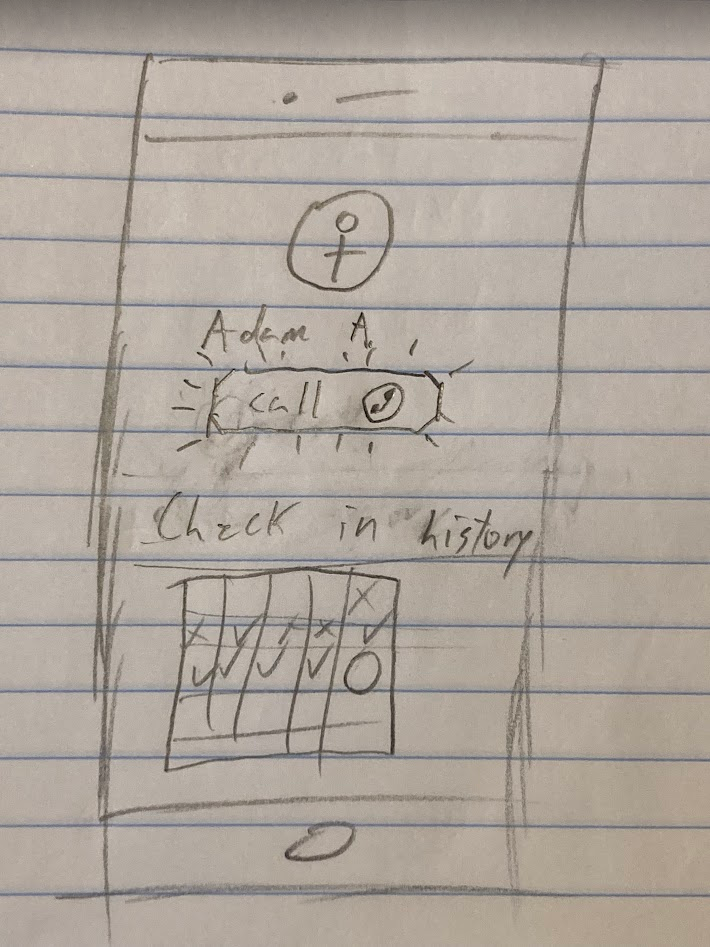 Adam A.
call
Check in history